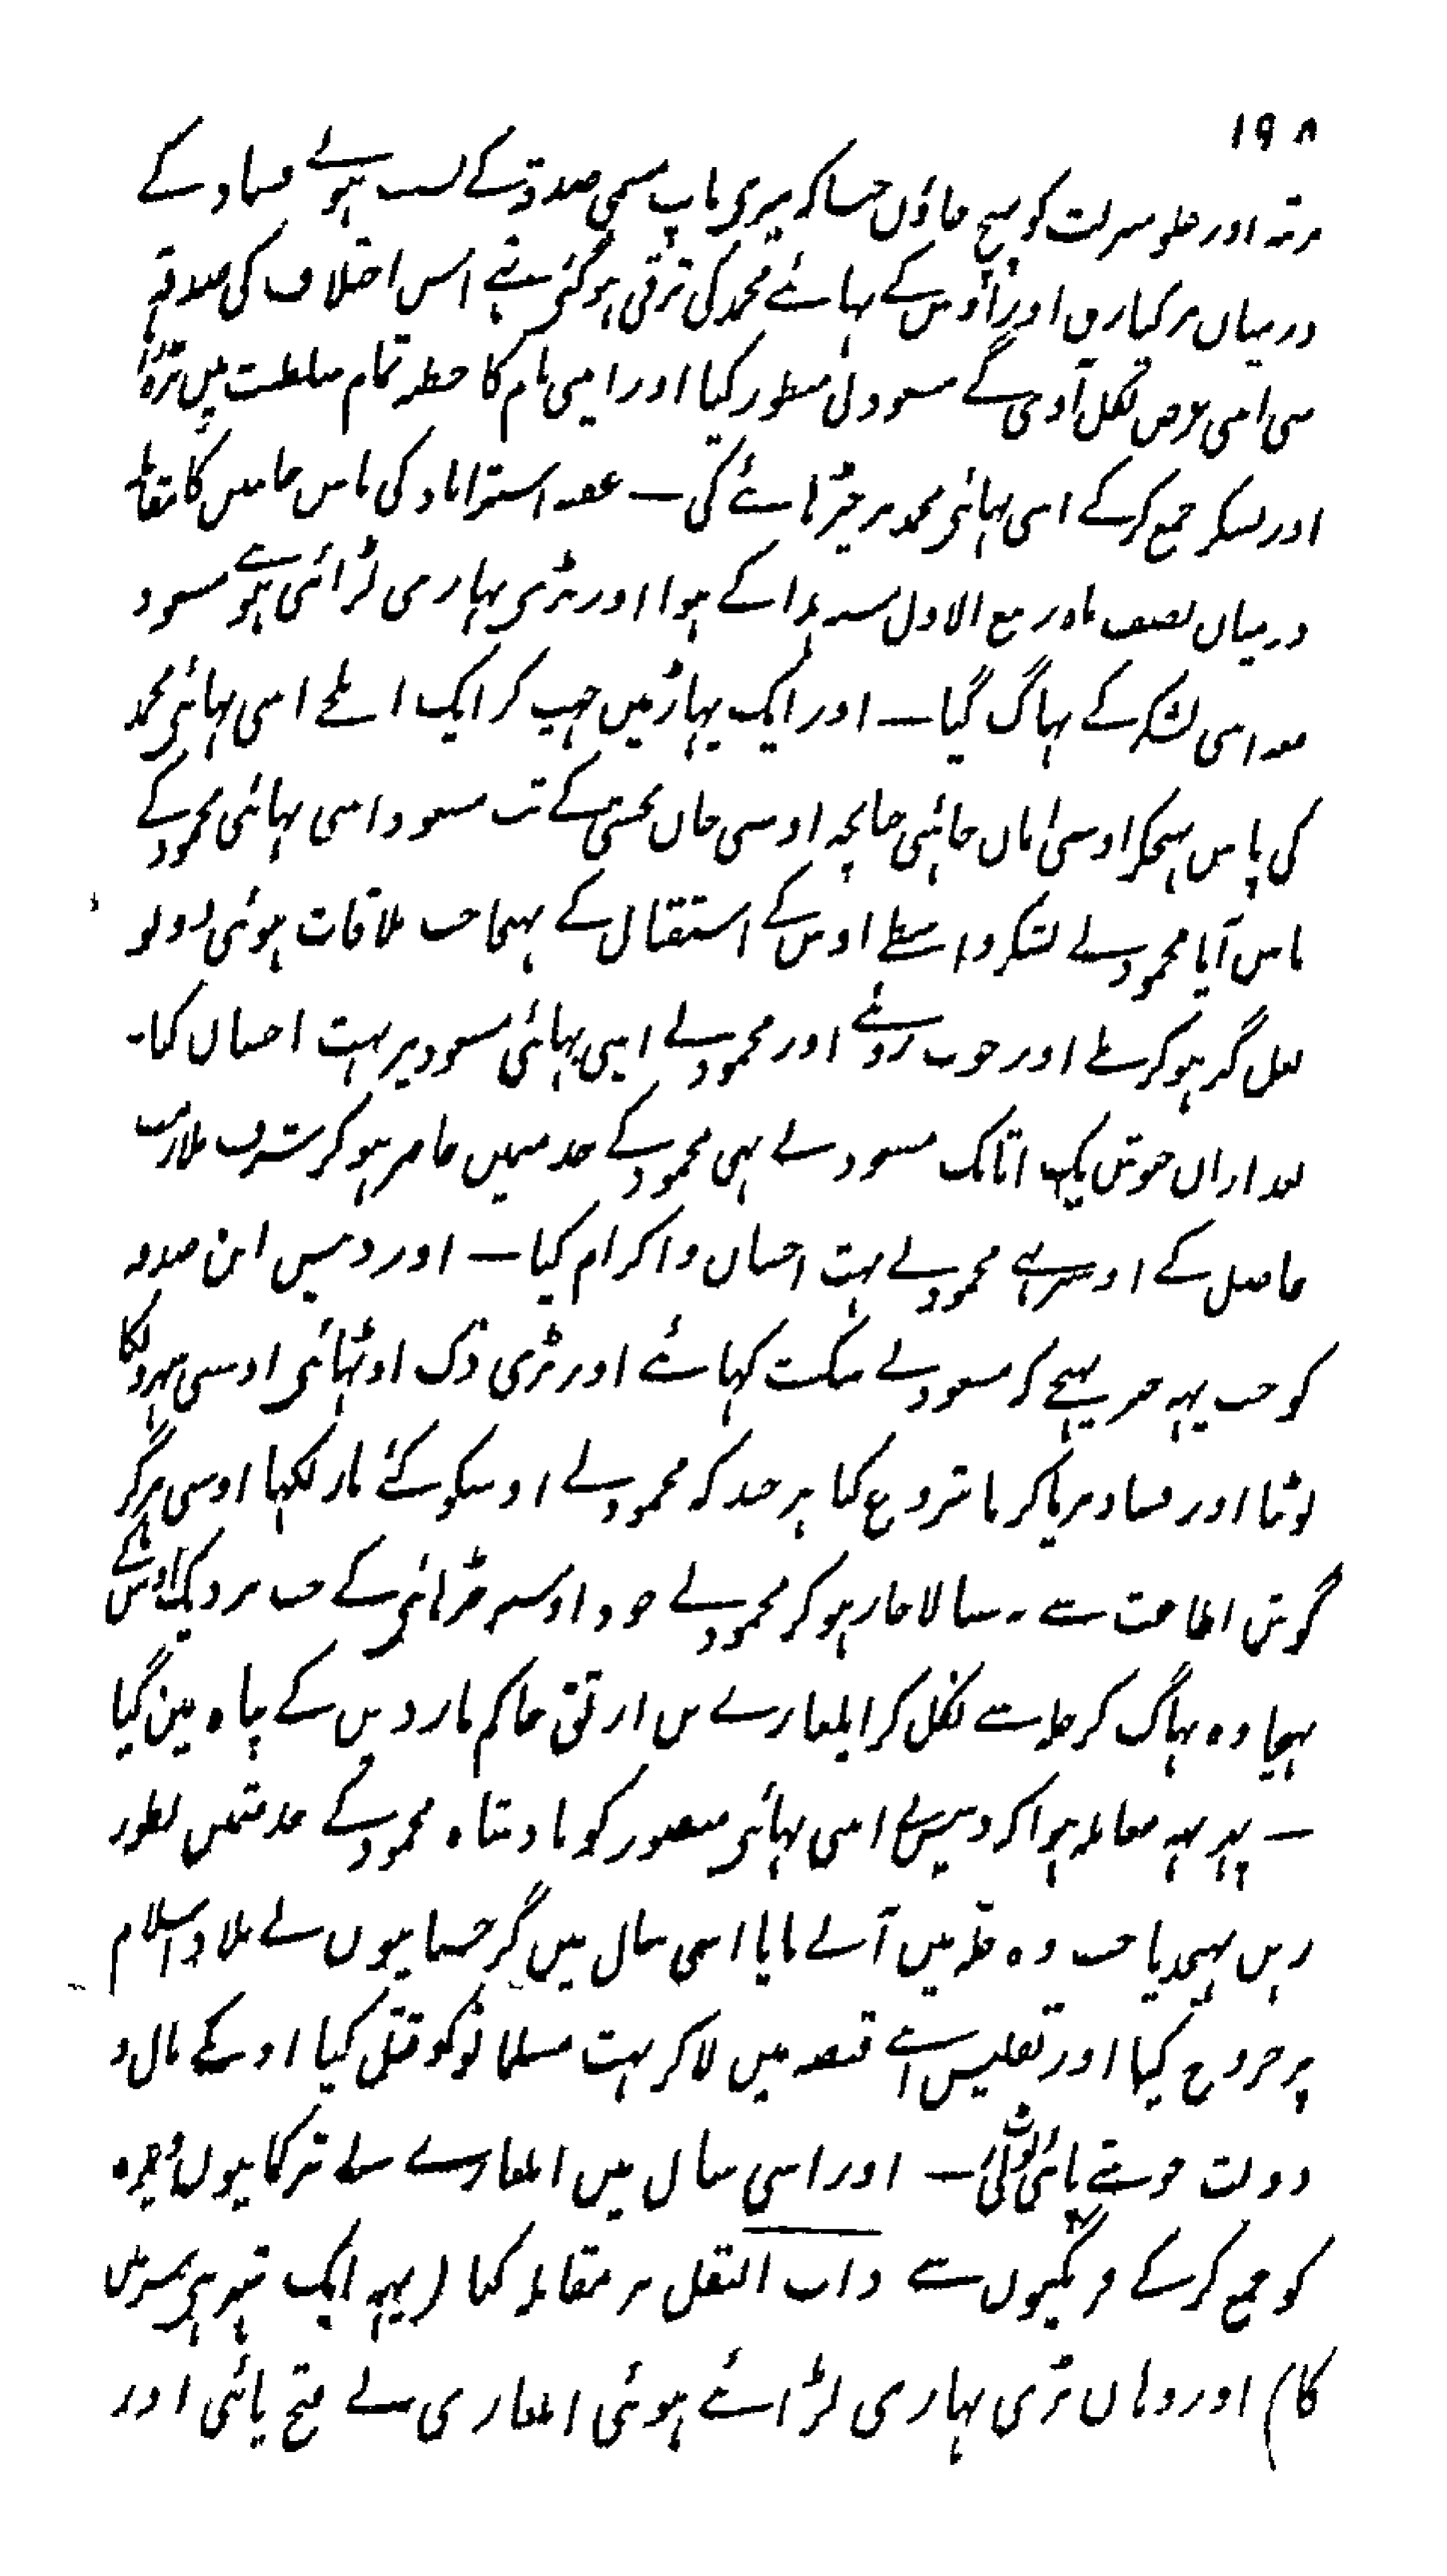 ۱۹۸
مرتبہ اور علو منزلت کو پہنچ جاؤں جیسا کہ میری باپ مسمی صدقہ کے سبب ہوئے فساد کے
درمیاں برکیارق اور اوس کے بہائے محمد کی ترقی ہوگئی تہے اس اختلاف کی صدقہ
سی اپنی غرض نکل آوی گے مسعود نی منظور کیا اور اپنی نام کا خطبہ تمام سلطنت میں پڑہوا
اور لشکر جمع کر کے اپنی بہائی محمود پر چڑہائے کی — عقبہ استراباد کی پاس جانبیں کا مقابلہ
درمیاں نصف ماہ ربیع الاول سنہ ہذا کے ہوا اور بڑی بہاری لڑائی ہوے مسعود
معہ اپنی لشکر کے بہاگ گیا — اور ایک پہاڑ میں چہپ کر ایک ایلچے اپنی بہائی محمود
کی پاس بہیجکر اوسی اماں چاہی چنانچہ اوسی جاں بخشی کے تب مسعود اپنی بہائی محمود کے
پاس آیا محمود نے لشکر واسطے اوس کے استقبال کے بہیجا جب ملاقات ہوئی دونو
بغل گیر ہوکر ملے اور خوب روئے اور محمود نے اپنی بہائی مسعود پر بہت احساں کیا۔
بعد ازاں جوش بیک اتابک مسعود نے بہی محمود کے خدمتمیں حاضر ہو کر شرف ملازمت
حاصل کے اوسپر بہے محمود نے بہت احساں و اکرام کیا — اور دبیس ابن صدقہ
کو جب یہہ خبر پہنچے کہ مسعود نے شکست کہائے اور بڑی زک اوٹہائی اوسی شہرونکا
لوٹنا اور فساد برپا کرنا شروع کیا ہر چند کہ محمود نے اوسکو کئے بار لکہا اوسی ہرگز
گوش اطاعت سے نہ سنا لاچار ہو کر محمود نے خود اوسپر چڑہائی کے جب نزدیک اوس کے
پہنچا وہ بہاگ کر حلہ سے نکل کر ایلغازے بن ارتق حاکم ماردیں کے پناہ میں گیا
— پہر یہہ معاملہ ہوا کہ دبیس نے اپنی بہائی منصور کو بادشاہ محمود کے خدمتمیں بطور
رہن بہیجدیا جب وہ حلہ میں آنے پایا اسی سال میں گرجستانیوں نے بلاد اسلام
پر خروج کیا اور تفلیس اپنے قبضہ میں لا کر بہت مسلمانونکو قتل کیا اونکے مال و
دولت جوتے پائی لوٹ لی — اور اسی سال میں ایلغازے نے ترکمانیوں وغیرہ
کو جمع کر کے فرنگیوں سے ذات البقل پر مقابلہ کیا ( یہہ ایک شہر ہی سرمیں
کا) اور وہاں بڑی بہاری لڑائے ہوئی ایلغازی نے فتح پائی اور